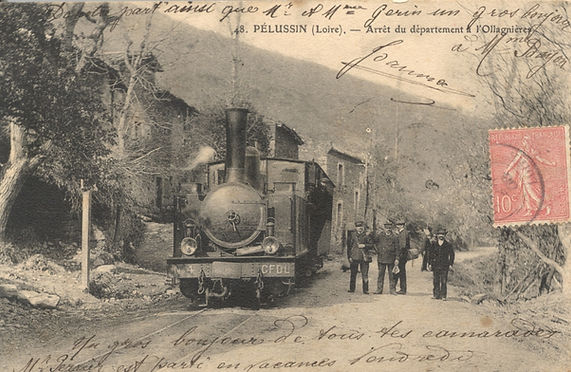 part ainsi que Mr et Mme Gerin un gros bonjour
48. PÉLUSSIN (Loire). — Arrêt du département à l'Ollagnière
à Mme
Jeanne
RÉPUBLIQUE FRANÇAISE
10c
4 CFDL
Un gros bonjour de tous tes camarades
Mr est parti en vacances